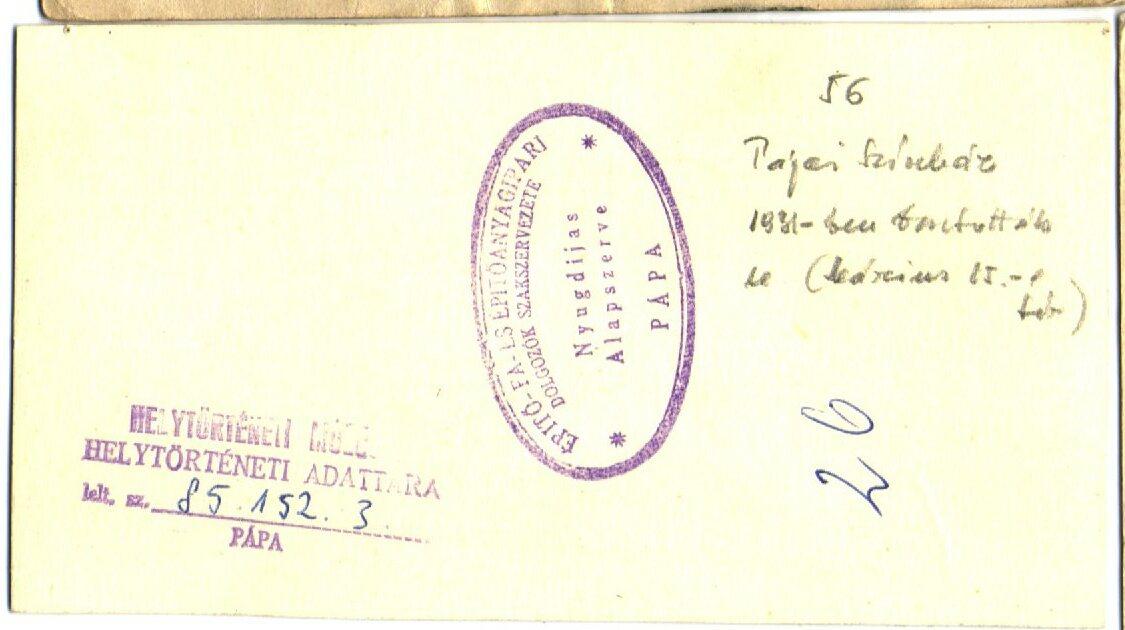 56
Pápai Színház
1931-ben bontották
le (Március 15.-e
tér)
ÉPÍTŐ-FA-ÉS ÉPÍTŐANYAGIPARI
DOLGOZÓK SZAKSZERVEZETE
Nyugdíjas
Alapszerve
PÁPA
26
HELYTÖRTÉNETI
HELYTÖRTÉNETI ADATTÁRA
lelt. sz. 85.152.3.
PÁPA